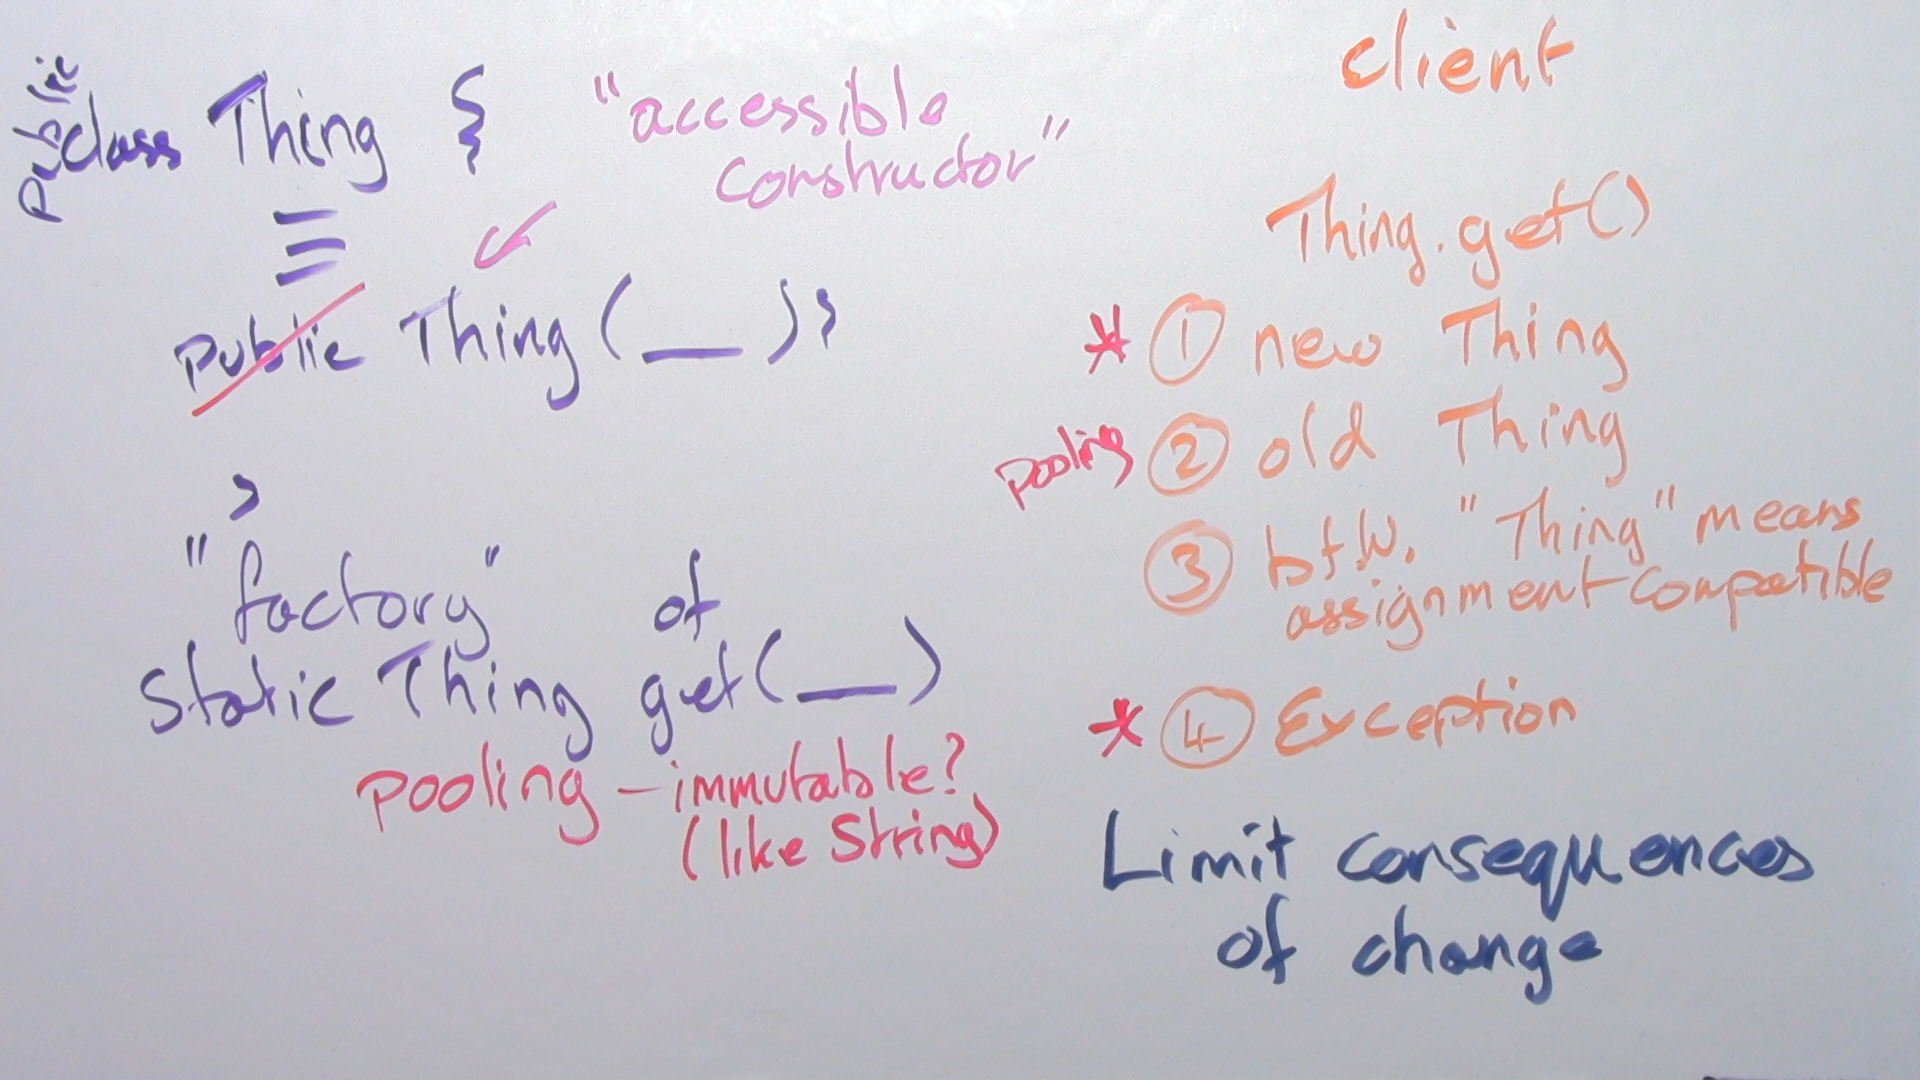 public
class Thing {
"accessible
constructor"
public Thing (__) }
}
"factory" of
static Thing get(__)
pooling - immutable?
(like String)
client
Thing.get()
* 1 new Thing
pooling 2 old Thing
3 btw. "Thing" means
assignment compatible
* 4 Exception
Limit consequences
of change